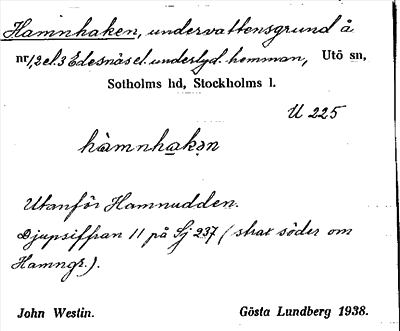 Hamnhaken, undervattensgrund å
nr 1, 2 el. 3 Edesnäs el. underlyd. hemman, Utö sn,
Sotholms hd, Stockholms l.
U 225
hàmnhakən
Utanför Hamnudden.
Djupsiffran 11 på Sj 237 (strax söder om
Hamngr.).
John Westin. Gösta Lundberg 1938.